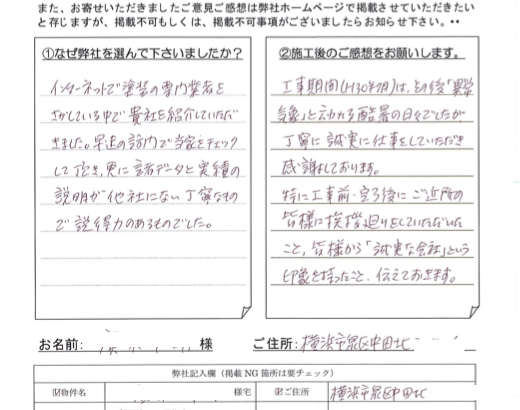 また、お寄せいただきましたご意見ご感想は弊社ホームページで掲載させていただきたい
と存じますが、掲載不可もしくは、掲載不可事項がございましたらお知らせ下さい。••
①なぜ弊社を選んで下さいましたか？
インターネットで塗装の専門業者を
さがしている中で貴社を紹介していただ
きました。早速の訪内で当家をチェック
して頂き、更に諸データと実績の
説明が他社にない丁寧なもの
で説得力のあるものでした。
②施工後のご感想をお願いします。
工事期間(H30年7月)は、その後「異常
気象」と云われる酷暑の日々でしたが
丁寧に誠実に仕事をしていただき
感謝しております。
特に工事前・完了後にご近所の
皆様に挨拶廻りをしていただいた
こと、皆様から「誠実な会社」という
印象を持ったこと、伝えておきます。
お名前: 様
ご住所: 横浜市泉区中田北
弊社記入欄（掲載 NG 箇所は要チェック）
物件名 様宅
ご住所 横浜市泉区中田北